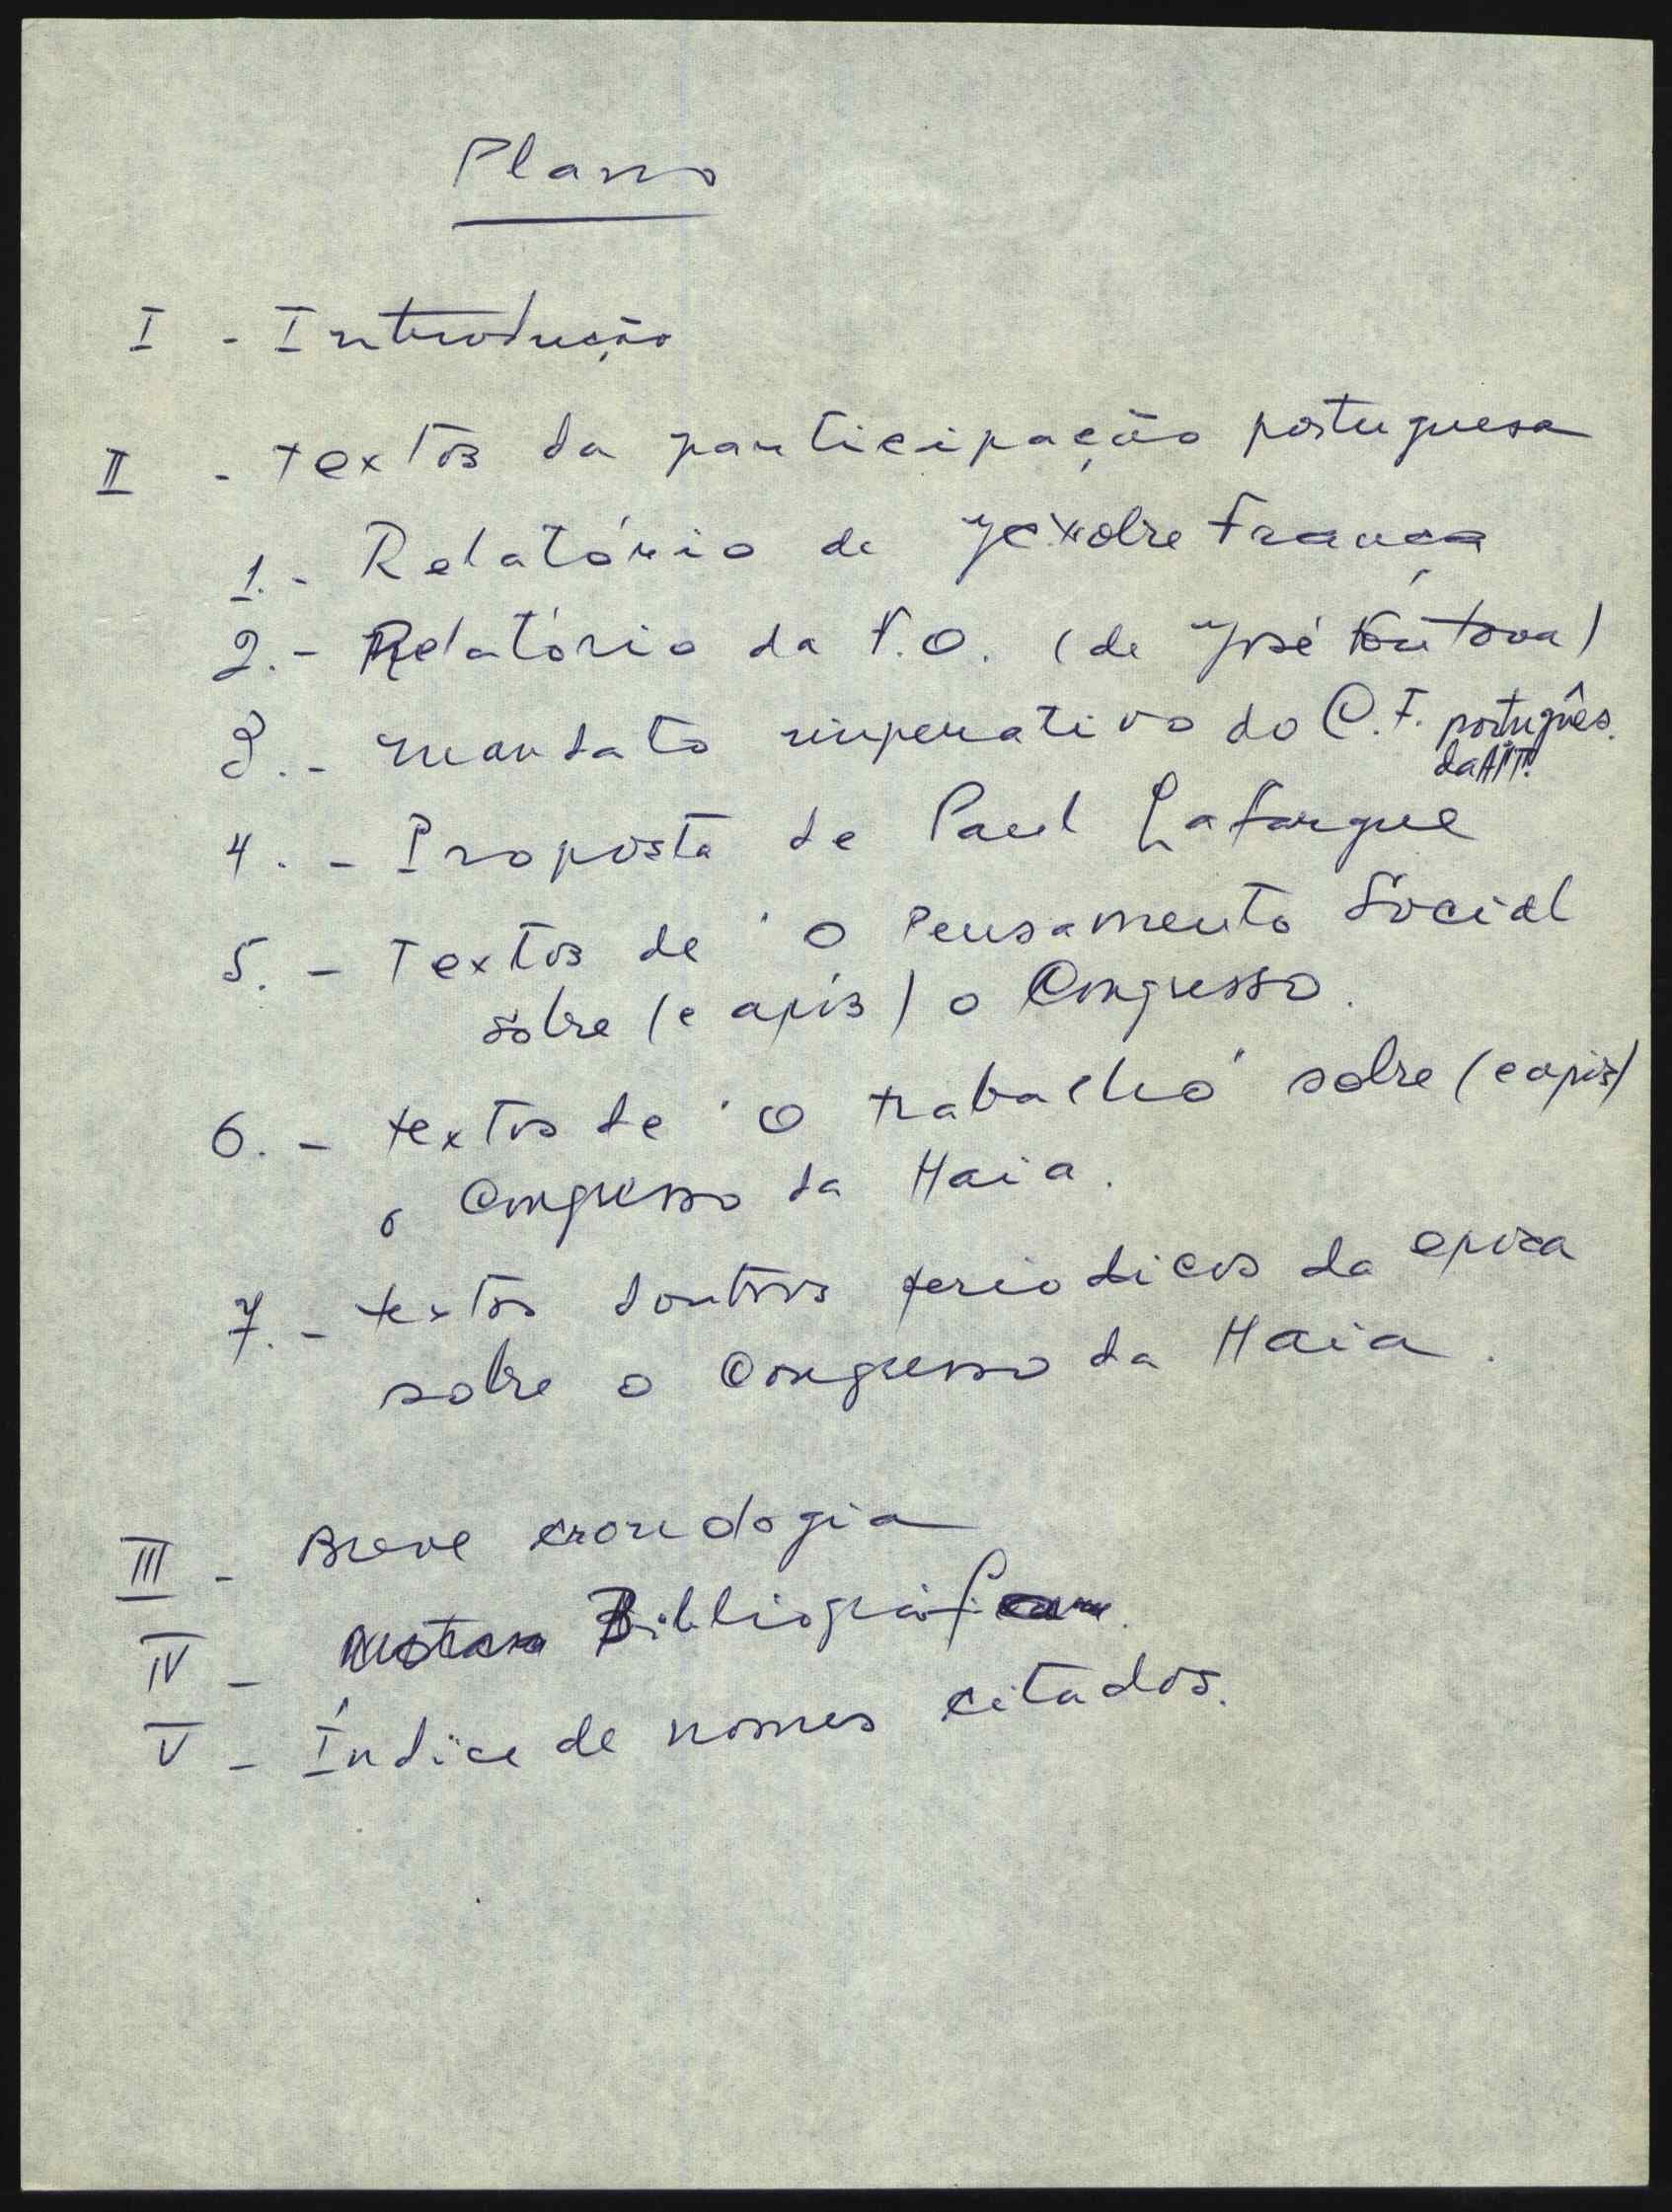 Plano
I - Introdução
II - textos da participação portuguesa
1. - Relatório de Nobre França
2. - Relatório da F.O. (de José Fontana)
3. - mandato imperativo do C.F. português.
da AIT.
4. - Proposta de Paul Lafargue
5. - Textos de "O Pensamento Social
sobre (e após) o Congresso.
6. - textos de "O trabalho" sobre (e após)
o Congresso da Haia.
7. - textos doutros periodicos da epoca
sobre o Congresso da Haia.
III - Breve cronologia
IV - Notas Bibliográficas.
V - Índice de nomes citados.